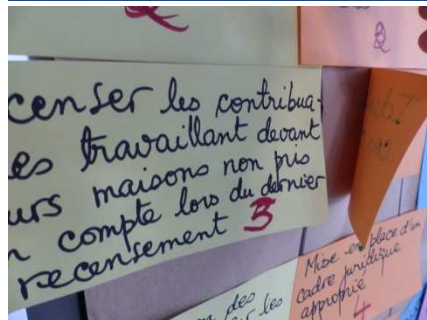 2
2
censer les contribua-
es travaillant devant
urs maisons non pris
n compte lors du dernier
recensement 3
Mise en place d'un
cadre juridique
approprié
4
des
les